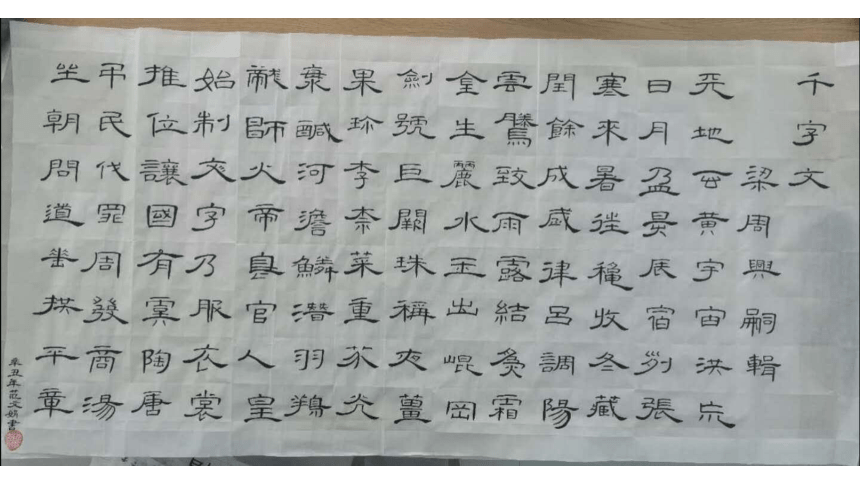 千字文
梁周興嗣輯
天地玄黄宇宙洪荒
日月盈昃辰宿列張
寒來暑往穐收冬藏
閏餘成歲律吕調陽
雲騰致雨露結為霜
金生麗水玉出崐岡
劍號巨闕珠稱夜薑
果珍李柰菜重芥光
海鹹河澹鱗潛羽翔
龍師火帝鳥官人皇
始制文字乃服衣裳
推位讓國有虞陶唐
弔民伐罪周發商湯
坐朝問道垂拱平章
辛丑年莊文娟書